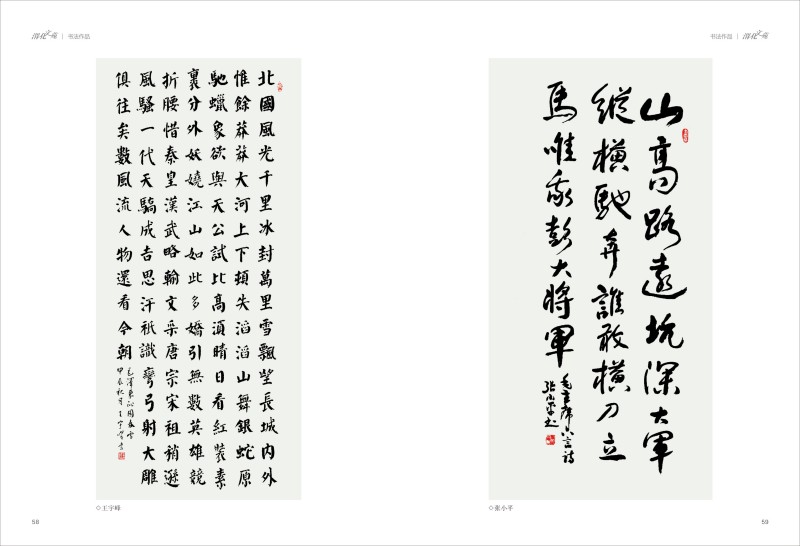 书法作品
北國風光千里冰封萬里雪飄望長城内外
惟餘莽莽大河上下頓失滔滔山舞銀蛇原
馳蠟象欲與天公試比高須晴日看紅裝素
裹分外妖嬈江山如此多嬌引無數英雄競
折腰惜秦皇漢武略輸文采唐宗宋祖稍遜
風騷一代天驕成吉思汗祇識彎弓射大雕
俱往矣數風流人物還看今朝
毛澤東沁園春雪
甲辰秋月王宇峰書
◇王宇峰
58
书法作品
山高路遠坑深大軍
縱橫馳奔誰敢橫刀立
馬唯我彭大將軍
毛主席六言詩
張小平書
◇张小平
59